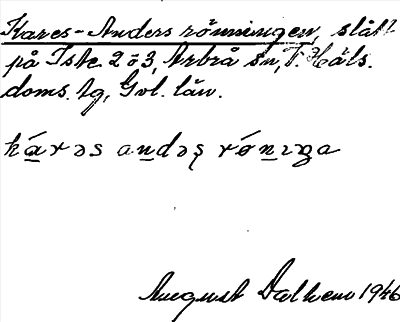 Kares-Anders rönningen, slått
på Iste 2 o 3, Arbrå sn, V. Häls.
doms. tg, Gvl. län.
ká̱rəs andəș rǿnıŋa
August Dalhem 1946